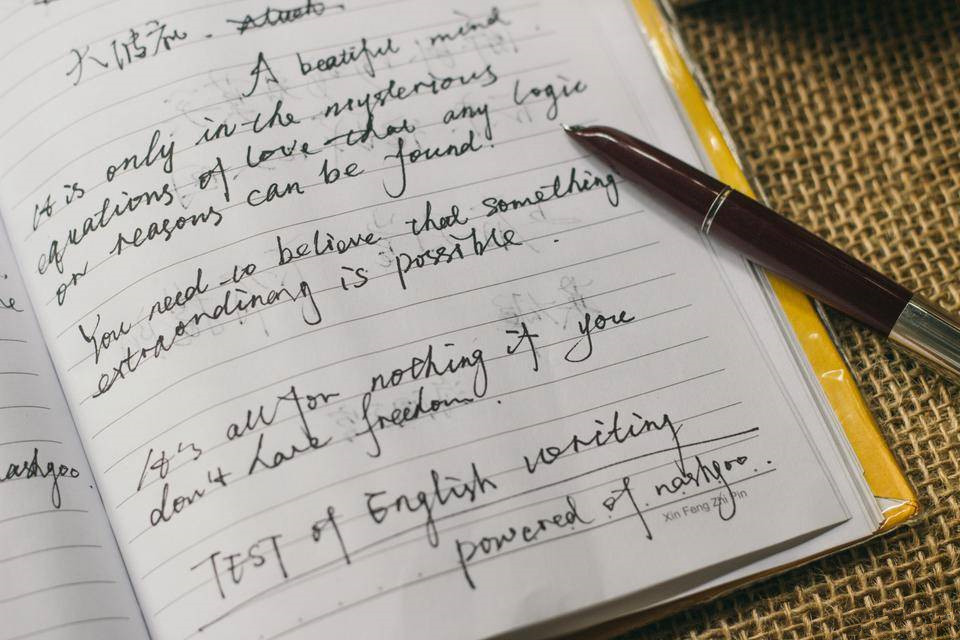 A beautiful mind
It is only in the mysterious
equations of love that any logic
or reasons can be found!
You need to believe that something
extraordinary is possible.
It's all for nothing if you
don't have freedom.
TEST of English writing
powered of nashgoo..
Xin Feng Zhi Pin
nashgoo.